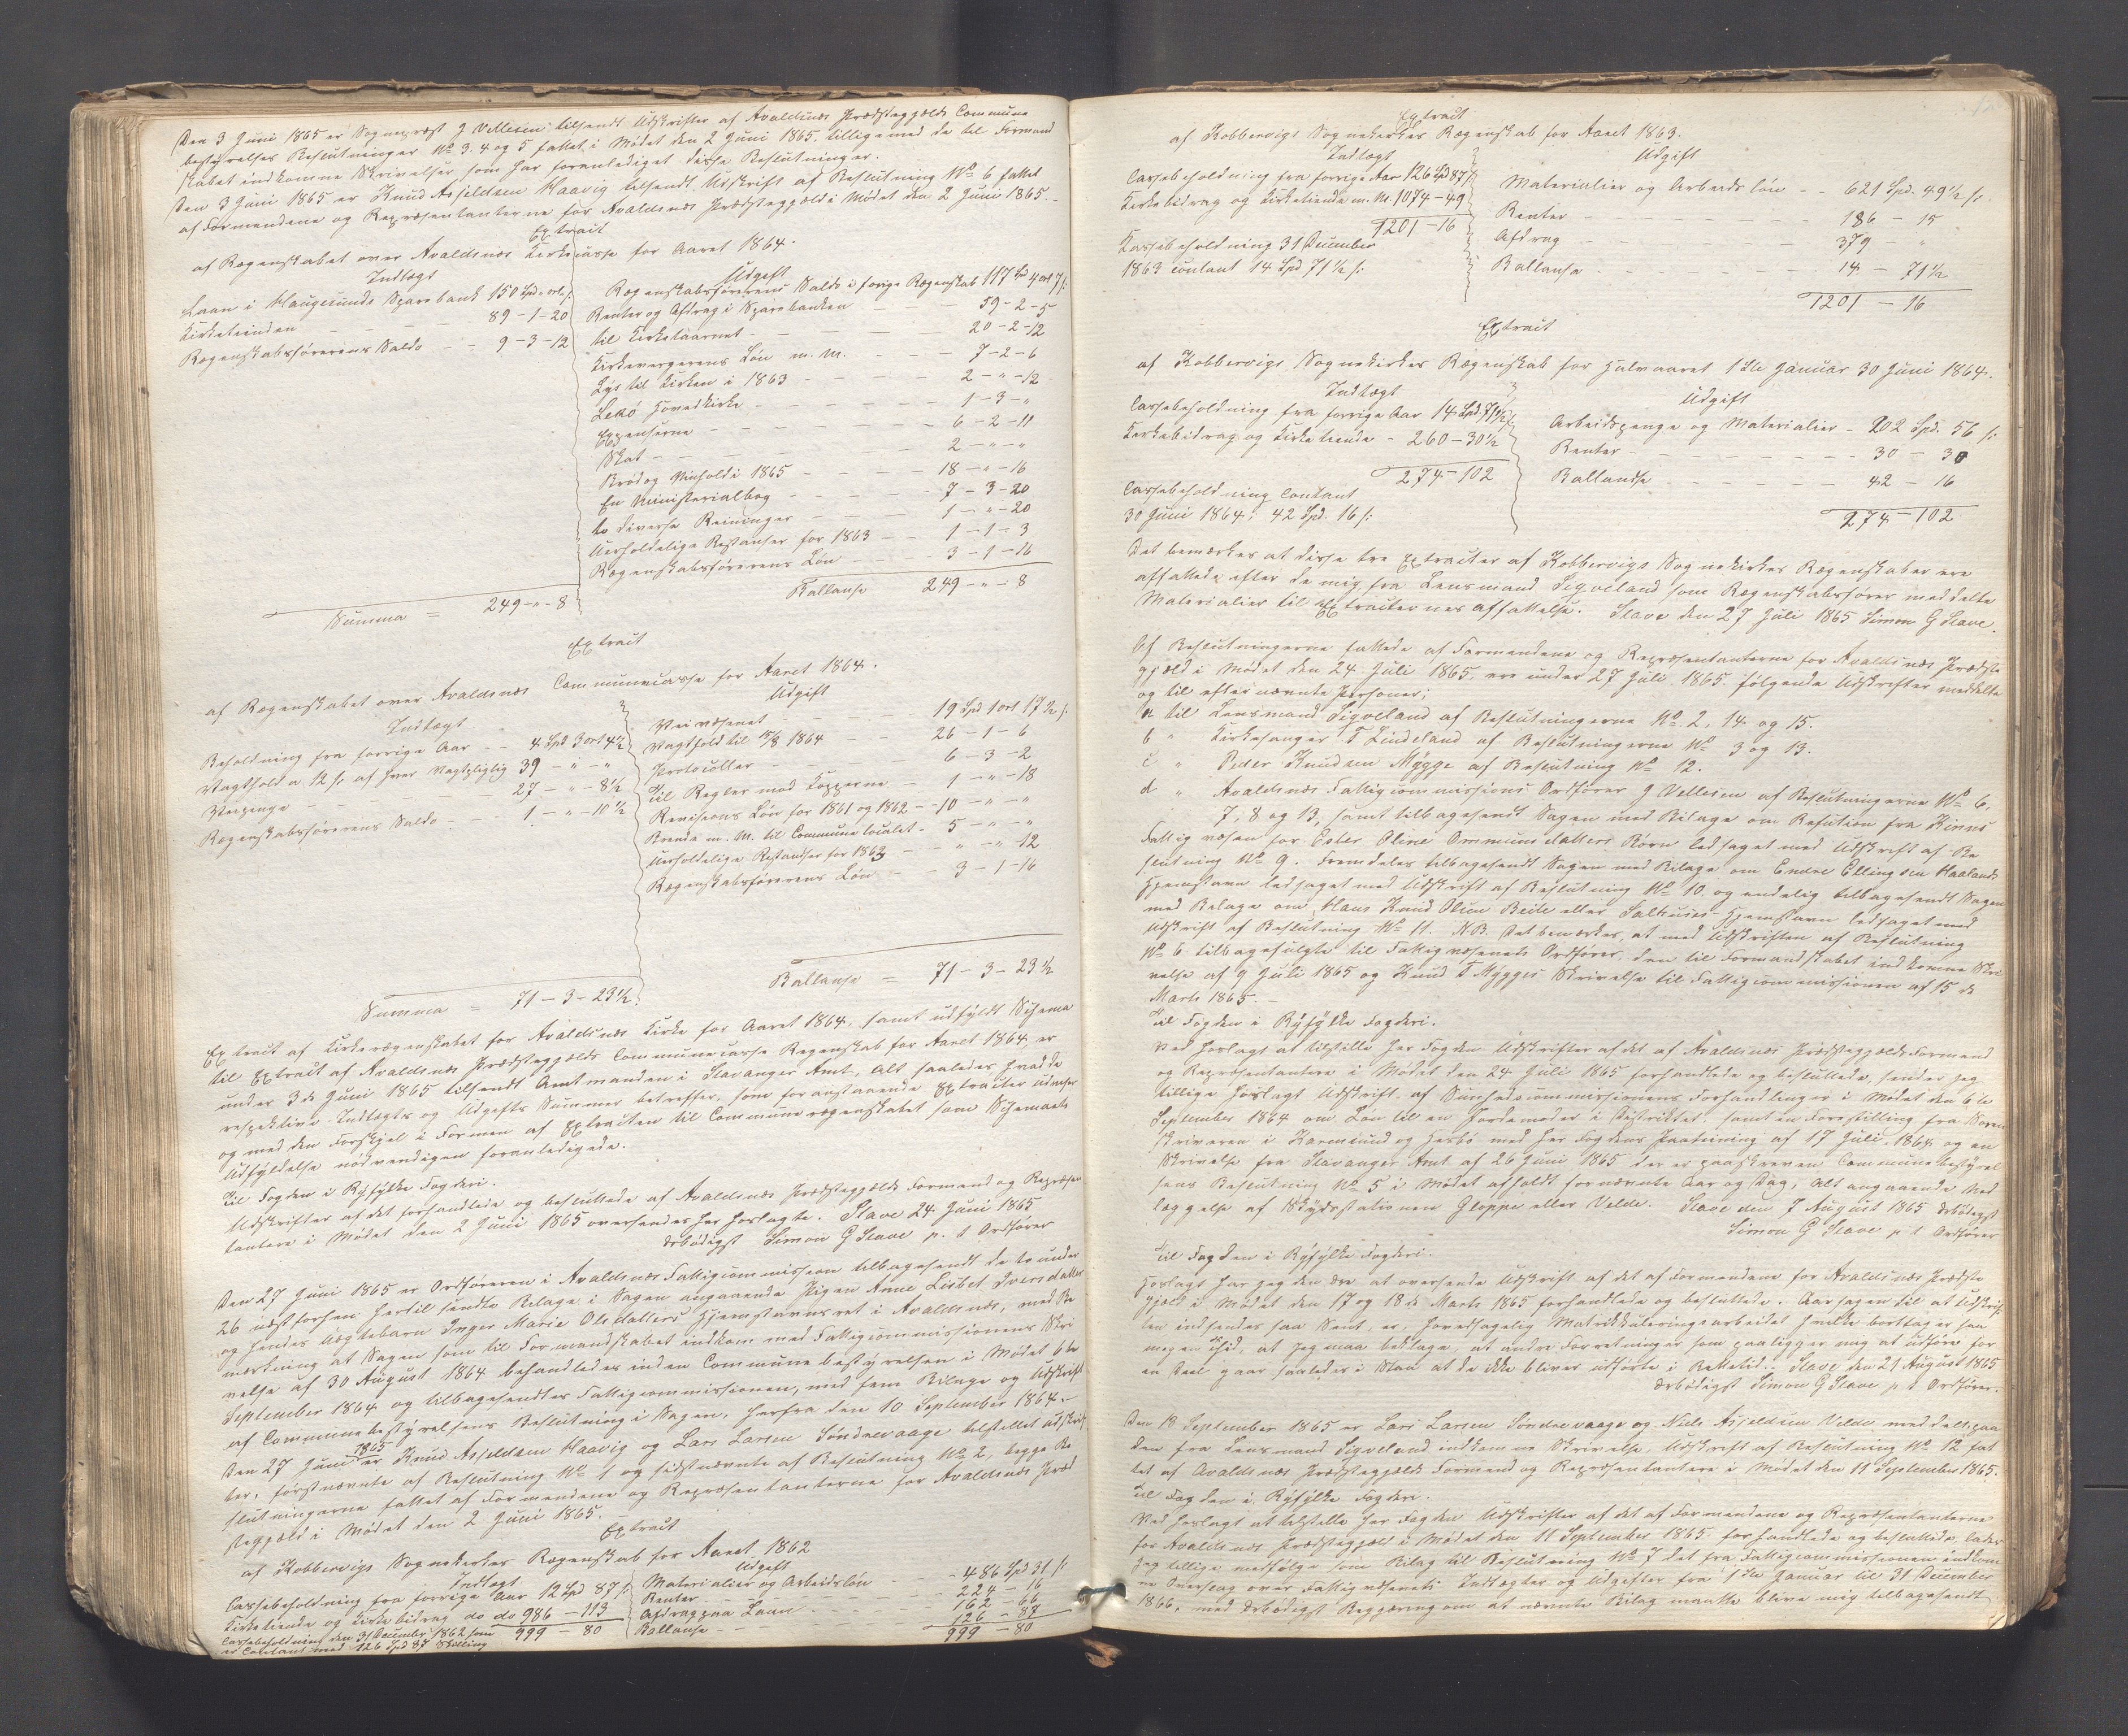 Den 3 Juni 1865 er Sognepræst J Vellesen tilsendt Udskrifter af Avaldsnæs Præstegjælds Commune
bestyrelses Beslutninger No 3. 4 og 5 fattet i Mødet den 2 Juni 1865, tilligemed de til Formand
skabet indkomne Skrivelser som har foranlediget disse Beslutninger.
Den 3 Juni 1865 er Knud Asjeldsen Haavig tilsendt Udskrift af Beslutning No 6 fattet
af Formændene og Repræsentanterne for Avaldsnæs Præstegjæld i Mødet den 2 Juni 1865.
Extrait
af Regenskabet over Avaldsnæs Kirkecasse for Aaret 1864.
Indtægt
Laan i Haugesunds Sparebank 150 Spd " ort " s:
Kirketienden - - 89-1-20
Regenskabsførerens Saldo - - 9-3-12
Summa = 249-"-8
Udgift
Regenskabsførerens Saldo i forrige Regenskab 117 Spd 4 ort 7 s:
Renter og Afdrag i Sparebanken - 59-2-5
til Kirketaarnet - - 20-2-12
Kirkevergerens Løn m. M. - - 7-2-6
Lys til Kirken i 1863 - - 2-"-12
Lexø Hovedkirke - - 1-3-"
Expenserne - - 6-2-11
Skat - - 2-"-"
Brød og Vinhold i 1865 - - 18-"-16
En Ministerialbog - - 7-3-20
to diverse Reininger - - 1-"-20
Uerholdelige Restanser for 1863 - - 1-1-3
Regenskabsførerens Løn - - 3-1-16
Ballanse 249-"-8
Extrait
af Regenskabet over Avaldsnæs Communecasse for Aaret 1864.
Indtægt
Beholdning fra forrige Aar - - 4 Spd 3 ort 4½
Vagthold a 12 s. af hver Vagtpligtig 39-"-"
Veipenge - - 27-"-8½
Regenskabsførerens Saldo - - 1-"-10½
Summa = 71-3-23½
Udgift
Veivæsenet - - 19 Spd 1 ort 17½ s:
Vagthold til 1864 - - 26-1-6
Protocoller - - 6-3-2
Til Regler mod Kopperne - 1-"-18
Revisions Løn for 1861 og 1862 - - 10-"-"
Brænde m. M. til Communelocalet - 5-"-"
Uerholdelige Restandser for 1863 - - "-"-12
Regenskabsførerens Løn - - 3-1-16
Ballanse = 71-3-23½
Extrait af Kirkeregenskabet for Avaldsnæs Kirke for Aaret 1864, samt udfyldt Schema
til Extrait af Avaldsnæs Præstegjælds Communecasse Regenskab for Aaret 1864, er
under 3de Juni 1865 tilsendt Amtmanden i Stavanger Amt, alt saaledes hvad de
respektive Indtægts og Udgifts Summer betreffer, som foranstaaende Extraiter udviser
og med den Forskjel i Formen af Extraiten til Communeregenskabet som Schemaets
Udfyldelse nødvendigen foranledigede.
Til Fogden i Ryfylke Fogderi.
Udskrifter af det forhandlede og besluttede af Avaldsnæs Præstegjælds Formænd og Repræsen
tantere i Mødet den 2 Juni 1865 oversendes her hoslagte. Stave 24 Juni 1865
Ærbødigst Simon G Stave p. t Ordfører
Den 27 Juni 1865 er Ordføreren i Avaldsnæs Fattigcommission tilbagesendt de to under
26 næstforhen hertil sendte Bilage i Sagen angaaende Pigen Anne Lisbet Iversdatter
og hendes Uægtebarn Inger Marie Olsdatters Hjemstavnsret i Avaldsnæs, med Be
mærkning at Sagen som til Formandskabet indkom med Fattigcommissionens Skri
velse af 30 August 1864 behandledes inden Communebestyrelsen i Mødet 6te
September 1864 og tilbagesendtes Fattigcommissionen, med fem Bilage og Udskrift
af Communebestyrelsens Beslutning i Sagen, herfra den 10 September 1864.
Den 27 Juni 1865 er Knud Asjeldsen Haavig og Lars Larsen Søndrevaage tilstillet Udskrif
ter, førstnævnte af Beslutning No 1 og sidstnævnte af Beslutning No 2, begge Be
slutningerne fattet af Formændene og Repræsentanterne for Avaldsnæs Præ
stegjæld i Mødet den 2 Juni 1865.
Extrait
af Kobbervigs Sognekirkes Regenskab for Aaret 1862
Indtægt
Cassebeholdning fra forrige Aar 12 Spd 87 s:
Kirketiende og Kirkebidrag do do 986-113
999-80
Cassebeholdning den 31 December 1862 som
er Contant med 126 Spd 87 Skilling
Udgift
Materialier og Arbeidsløn - - 486 Spd 31 s:
Renter - - 224-16
Afdrag paa Laan - - 162-66
Ballanse - - 126-87
999-80
Extrait
af Kobbervigs Sognekirkes Regenskab for Aaret 1863.
Indtægt
Cassebeholdning fra forrige Aar 126 Spd 87 s
Kirkebidrag og Kirketiende m. M. 1074-49
1201-16
Kassebeholdning 31 December
1863 contant 14 Spd 71½ s:
Udgift
Materialier og Arbeidsløn - - 621 Spd. 49½ s:
Renter - - 186-15
Afdrag - - 379-"
Ballanse - - 14-71½
1201-16
Extrait
af Kobbervigs Sognekirkes Regenskab for Halvaaret 1ste Januar 30 Juni 1864.
Indtægt
Cassebeholdning fra forrige Aar 14 Spd 71½ s
Kirkebidrag og Kirketiende - 260-30½
274-102
Cassebeholdning contant
30 Juni 1864: 42 Spd. 16 s:
Udgift
Arbeidspenge og Materialier - 202 Spd. 56 s:
Renter - - 30-30
Ballandse - - 42-16
274-102
Det bemærkes at disse tre Extraiter af Kobbervigs Sognekirkes Regenskaber ere
affattede efter de mig fra Lensmand Sigveland som Regenskabsfører meddelte
Materialier til Extraiternes Affattelse. Stave den 27 Juli 1865 Simon G Stave.
Af Beslutningerne fattede af Formændene og Repræsentanterne for Avaldsnæs Præste
gjæld i Mødet den 24 Juli 1865, ere under 27 Juli 1865 følgende Udskrifter meddelte
og til efternævnte Personer;
a til Lensmand Sigveland af Beslutningerne No. 2, 14 og 15.
b " Kirkesanger T Lindeland af Beslutningerne No 3 og 13.
c " Peder Knudsen Mygge af Beslutning No 12.
d " Avaldsnæs Fattigcommissions Ordfører J Vellesen af Beslutningerne No 6,
7, 8 og 13, samt tilbagesendt Sagen med Bilage om Refution fra Kinns
Fattigvæsen for Ester Oline Ommundsdatters Børn ledsaget med Udskrift af Be
slutning No 9. Fremdeles tilbagesendt Sagen med Bilage om Endre Ellingsen Haalands
Hjemstavn ledsaget med Udskrift af Beslutning No 10 og endelig tilbagesendt Sagen
med Bilage om Hans Knud Olsen Beite eller Salhuses Hjemstavn ledsaget med
Udskrift af Beslutning No 11. NB. Det bemærkes, at med Udskriften af Beslutning
No 6 tilbagefulgte til Fattigvæsenets Ordfører den til Formandskabet indkomne Skri
velse af 9 Juli 1865 og Knud T Mygges Skrivelse til Fattigcommissionen af 15 de
Marts 1865.
Til Fogden i Ryfylke Fogderi.
Ved hoslagt at tilstille Her Fogden Udskrifter af det af Avaldsnæs Præstegjælds Formænd
og Repræsentantere i Mødet den 24 Juli 1865 forhandlede og besluttede, sender jeg
tillige hoslagt Udskrift af Sundhedscommissionens Forhandlinger i Mødet den 6te
September 1864 om Løn til en Jordemoder i Distriktet, samt en Forestilling fra Soren
skriveren i Karmsund og Hesbø med Her Fogdens Paategning af 17 Juli 1864 og en
Skrivelse fra Stavanger Amt af 26 Juni 1865 der er paaskreven Communebestyrel
sens Beslutning No 5 i Mødet afholdt fornævnte Aar og Dag, alt angaaende Ned
læggelse af Skydsstationen Gloppe eller Velde. Stave den 7 August 1865 Ærbødigst
Simon G Stave p t Ordfører
Til Fogden i Ryfylke Fogderi.
Hoslagt har jeg den Ære at oversende Udskrift af det af Formændene for Avaldsnæs Præste
gjæld i Mødet den 17 og 18de Marts 1865 forhandlede og besluttede. Aarsagen til at Udskrif
ten indsendes saa sent, er, hovedsagelig Matrikkuleringsarbeidet hvilke borttager saa
megen Tid, at jeg maa beklage, at andre Forretninger som paaligger mig at udføre for
en Deel gaar saaledes i Staa at de ikke bliver udførte i Rettetid. Stave den 21 August 1865
Ærbødigst Simon G Stave p t Ordfører.
Den 18 September 1865 er Lars Larsen Søndrevaage og Nils Asjeldsen Velde meddelt paa
den fra Lensmand Sigveland indkomne Skrivelse Udskrift af Beslutning No 12 fat
tet af Avaldsnæs Præstegjælds Formænd og Repræsentantere i Mødet den 11 September 1865.
Til Fogden i Ryfylke Fogderi.
Ved hoslagt at tilstille Her Fogden Udskrifter af det af Formændene og Repræsentanterne
for Avaldsnæs Præstegjæld i Mødet den 11 September 1865 forhandlede og besluttede, lader
jeg tillige medfølge som Bilag til Beslutning No 7 det fra Fattigcommissionen indkom
ne Overslag over Fattigvæsenets Indtægter og Udgifter fra 1ste Januar til 31 December
1866, med Ærbødigst Begjæring om at nævnte Bilag maatte blive mig tilbagesendt